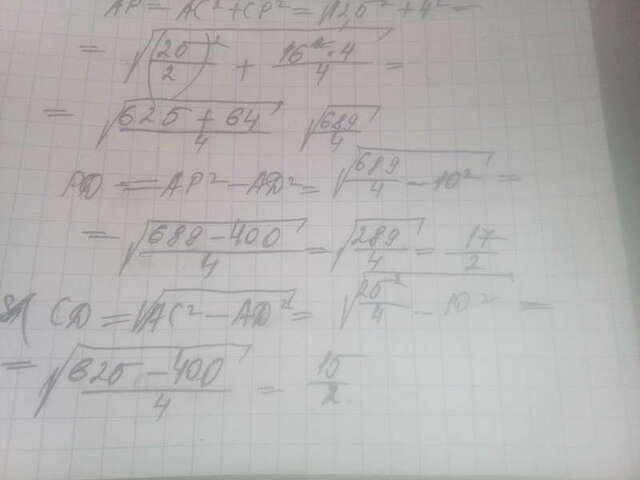 AP = AC² + CP² = √12,5² + 4² =
= √(25/2)² + 16 · 4/4 =
= √625 + 64/4 √689/4
PD = AP² - AD² = √689/4 - 10² =
= √689 - 400/4 = √289/4 = 17/2
8) CD = √AC² - AD² = √25²/4 - 10² =
= √625 - 400/4 = 15/2